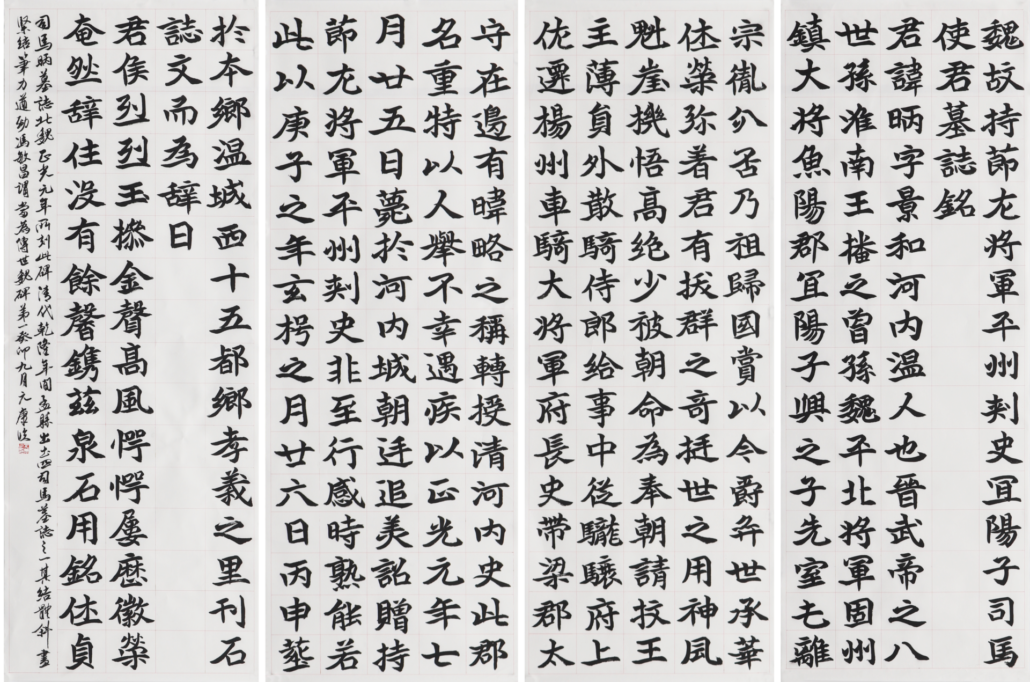 魏故持節左將軍平州刾史冝陽子司馬
使君墓誌銘
君諱昞字景和河内温人也晉武帝之八
世孫淮南王播之曾孫魏平北將軍固州
鎮大將魚陽郡冝陽子興之子先室乇離
宗胤分否乃祖歸国賞以今爵弈世承華
休榮弥着君有拔群之奇挺世之用神凨
魁崖機悟高绝少被朝命為奉朝請牧王
主薄貟外散騎侍郎給事中從驪驤府上
佐遷揚州車騎大將軍府長史帶梁郡太
守在邊有暐略之稱轉授清河内史此郡
名重特以人舉不幸遇疾以正光元年七
月廿五日薨扵河内城朝迋追美詔贈持
莭左將軍平州刾史非至行感時熟能若
此以庚子之年玄枵之月廿六日丙申塟
扵本鄉温城西十五都鄉孝義之里刊石
誌文而為辞曰
君侯烈烈玉摖金聲髙風愕愕屢歷徽榮
奄然辞住没有餘馨鐫茲泉石用銘休貞
司馬昞墓誌北魏正光元年所刻此碑清代乾隆年间孟縣出土四司馬墓誌之一其結體斜畫
緊結筆力遒勁馮敏昌謂當為傳世魏碑第一癸卯九月元